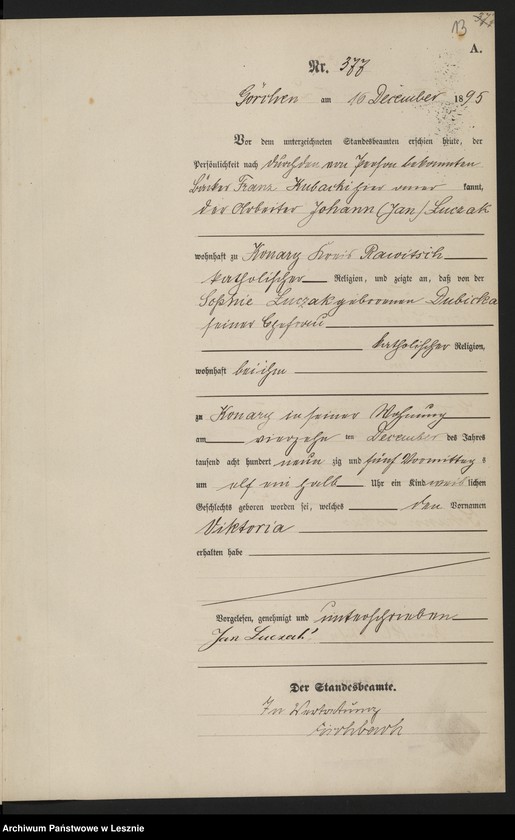 13
A.
Nr. 377
Görchen am 16 December 1895
Vor dem unterzeichneten Standesbeamten erschien heute, der
Persönlichkeit nach durch den von Person bekannten
Bäcker Franz Kubacki hier aner kannt,
der Arbeiter Johann (Jan) Luczak
wohnhaft zu Konary Kreis Rawitsch
katholischer Religion, und zeigte an, daß von der
Sophie Luczak geborenen Dubicka
seiner Ehefrau
katholischer Religion,
wohnhaft bei ihm
zu Konary in seiner Wohnung
am vierzehn ten December des Jahres
tausend acht hundert neun zig und fünf Vormittag s
um elf ein halb Uhr ein Kind weib lichen
Geschlechts geboren worden sei, welches den Vornamen
Viktoria
erhalten habe
Vorgelesen, genehmigt und unterschrieben
Jan Luczak
Der Standesbeamte.
In Vertretung
Archiwum Państwowe w Lesznie